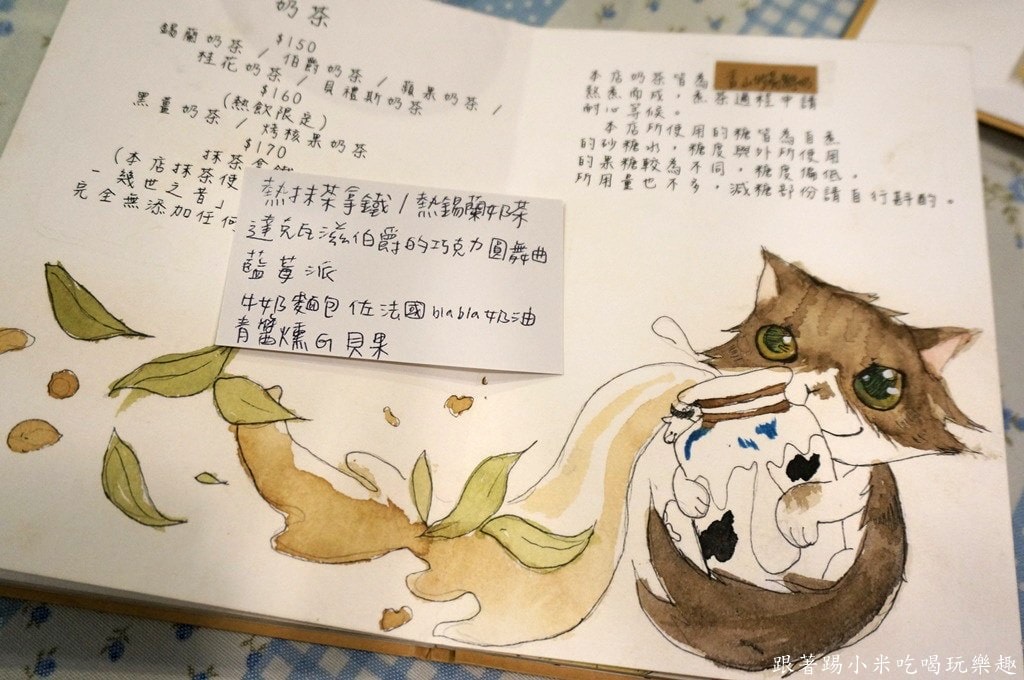 奶茶
$150
錫蘭奶茶 / 伯爵奶茶 / 蘋果奶茶 /
桂花奶茶 / 貝禮斯奶茶
$160
(熱飲限定)
黑薑奶茶 / 烤核果奶茶
$170
抹茶
(本店抹茶使
「幾世之昔」
完全無添加任何
熱抹茶拿鐵 / 熱錫蘭奶茶
達克瓦滋伯爵的巧克力圓舞曲
藍莓派
牛奶麵包佐法國blabla奶油
青醬燻G貝果
本店奶茶皆為
熬煮而成，煮茶過程中請
耐心等候。
本店所使用的糖皆為自煮
的砂糖水，糖度與外所使用
的果糖較為不同，糖度偏低，
所用量也不多，減糖部份請自行斟酌。
跟著踢小米吃喝玩樂趣